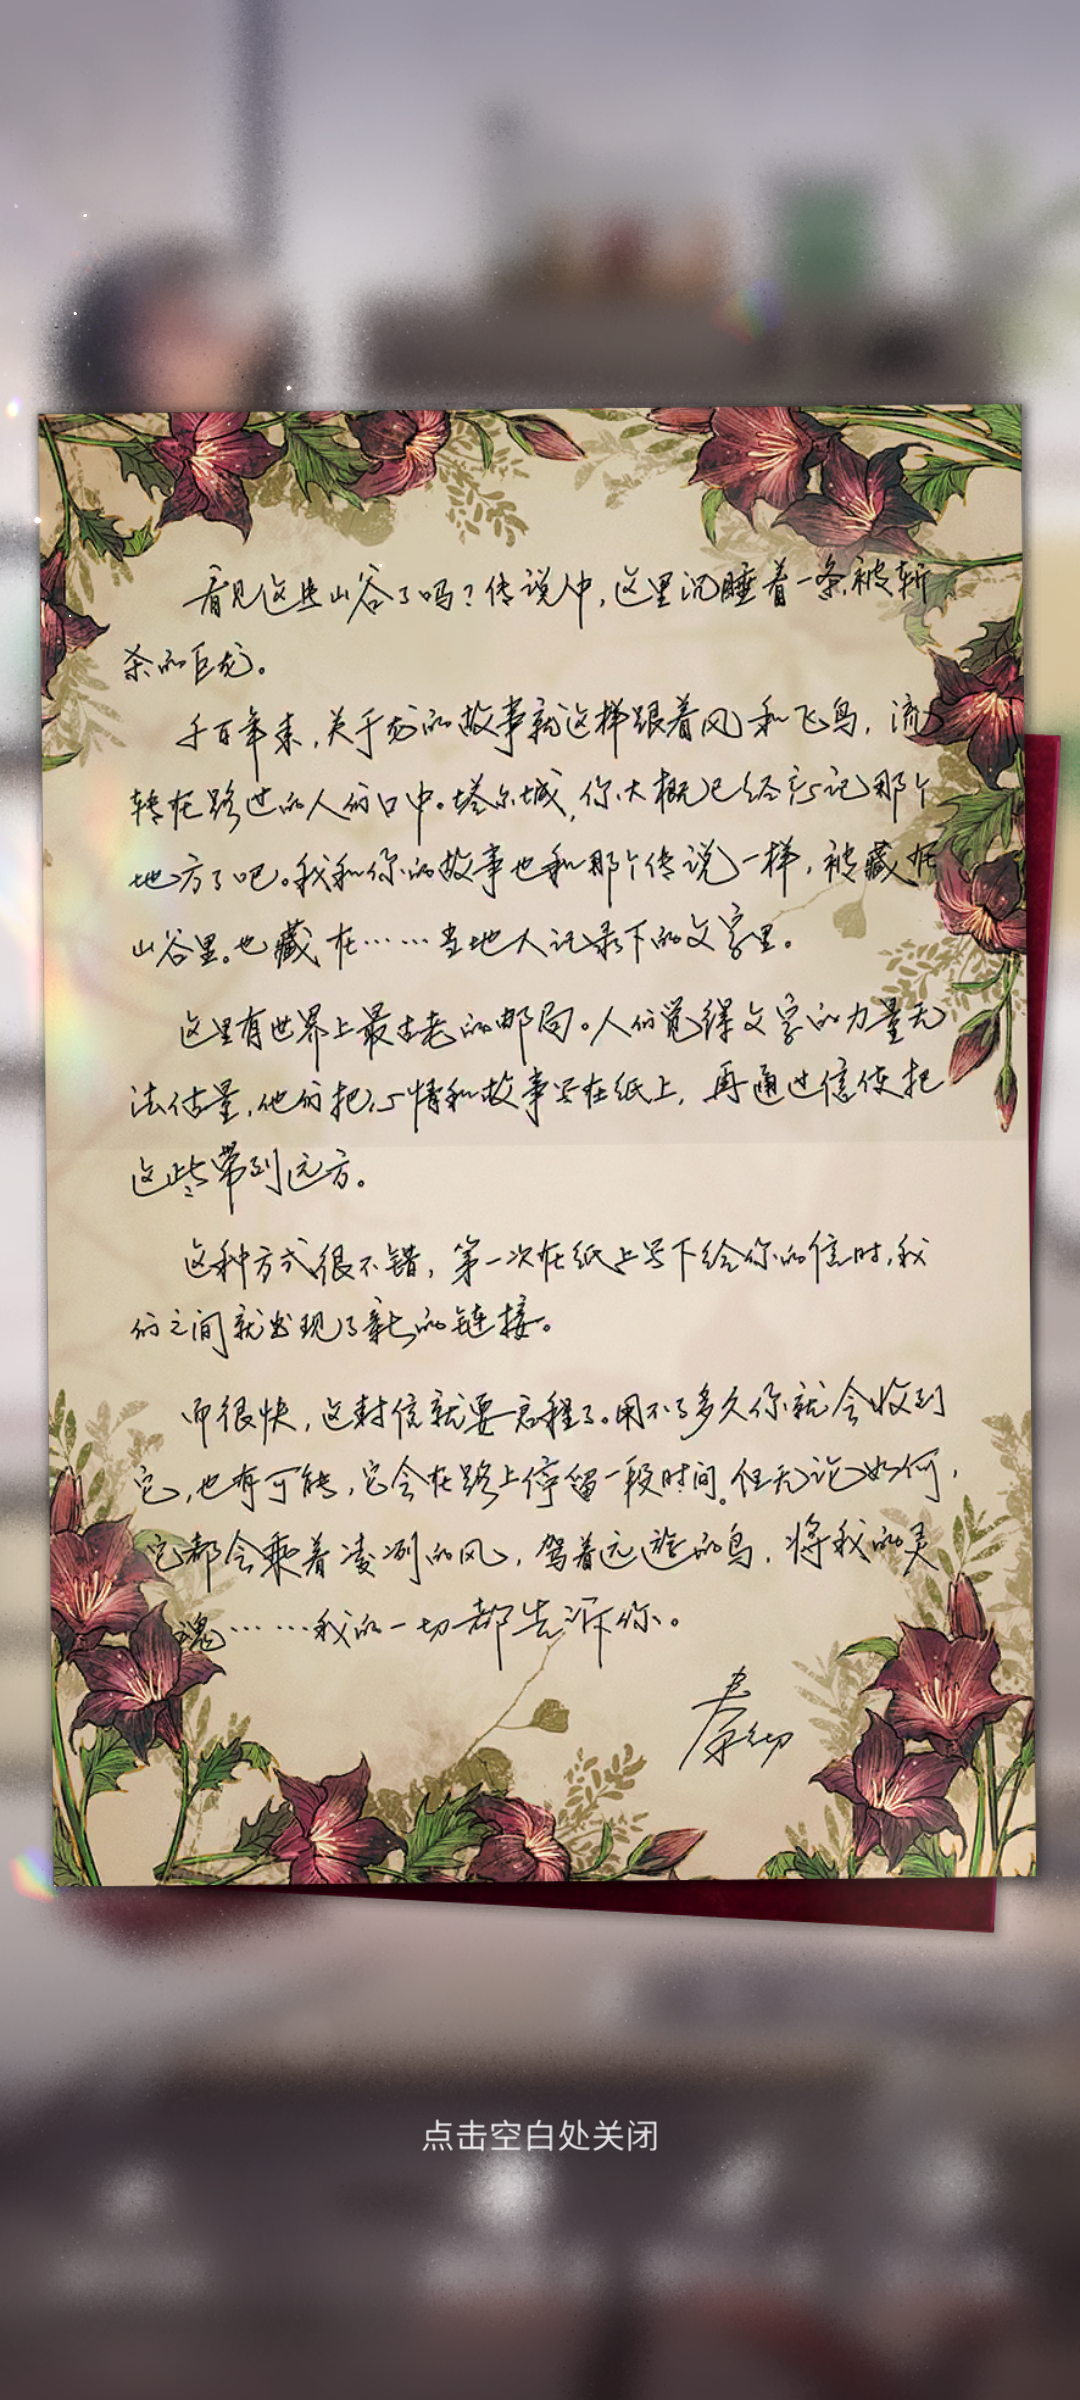 看见这些山谷了吗？传说中，这里沉睡着一条被斩
杀的巨龙。
千百年来，关于龙的故事就这样跟着风和飞鸟，流
转在路过的人们口中。塔尔城，你大概已经忘记那个
地方了吧。我和你的故事也和那个传说一样，被藏在
山谷里。也藏在……当地人记录下的文字里。
这里有世界上最古老的邮局。人们觉得文字的力量无
法估量，他们把心情和故事写在纸上，再通过信使把
这些带到远方。
这种方式很不错，第一次在纸上写下给你的信时，我
们之间就出现了新的链接。
而很快，这封信就要启程了。用不了多久你就会收到
它，也有可能，它会在路上停留一段时间。但无论如何，
它都会乘着凌冽的风，驾着远旋的鸟，将我的灵
魂……我的一切都告诉你。
秦彻
点击空白处关闭